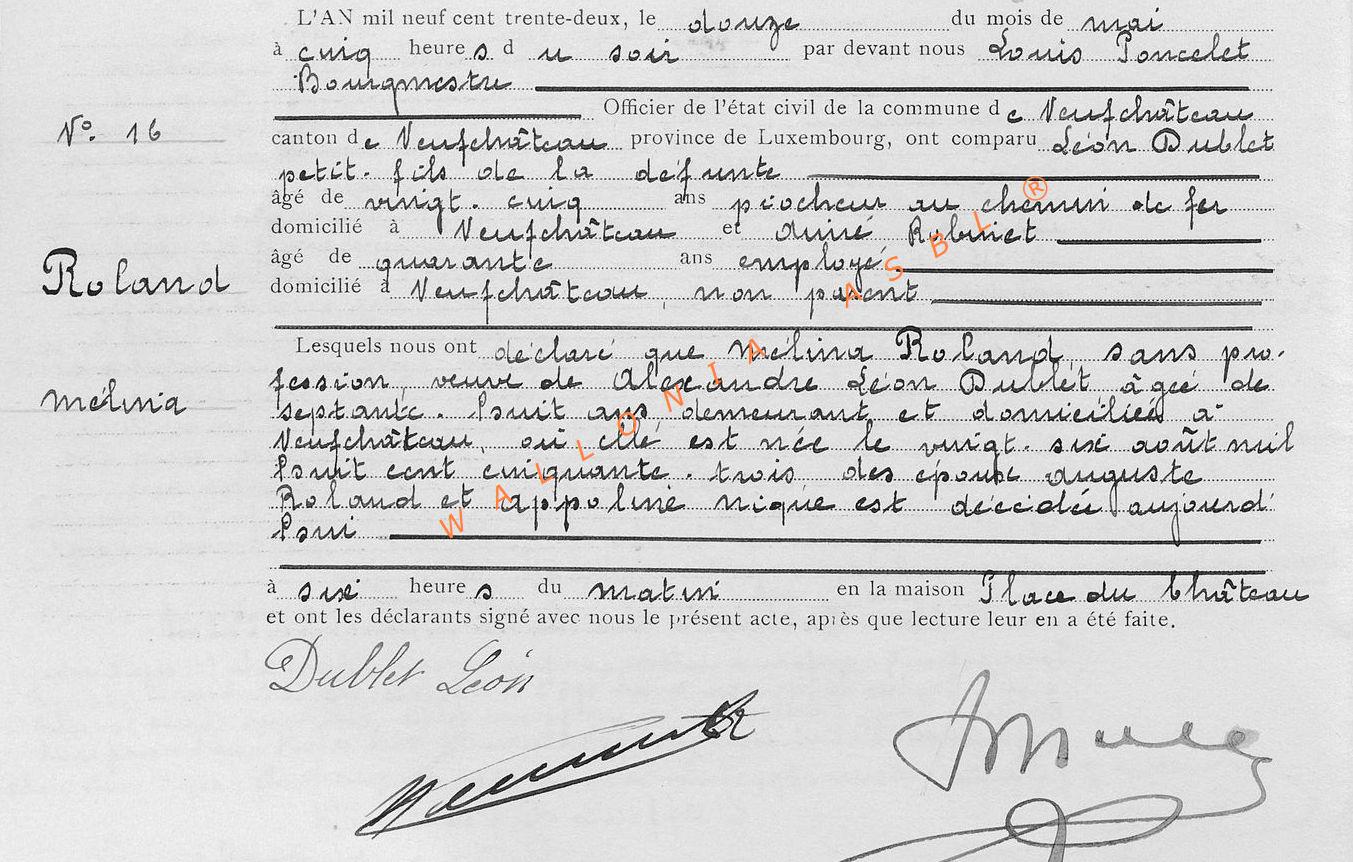 L'AN mil neuf cent trente-deux, le douze du mois de mai
à cinq heure s d u soir par devant nous Louis Poncelet
Bourgmestre
Officier de l'état civil de la commune d e Neufchâteau
N° 16
canton d e Neufchâteau province de Luxembourg, ont comparu Léon Dublet
petit-fils de la défunte
âgé de vingt-cinq ans piocheur au chemin de fer
domicilié à Neufchâteau et Aimé Robinet
âgé de quarante ans employé
domicilié à Neufchâteau, non parent
Roland
Mélina
Lesquels nous ont déclaré que Mélina Roland, sans pro-
fession, veuve de Alexandre Léon Dublet âgée de
septante-huit ans demeurant et domiciliée à
Neufchâteau, où elle est née le vingt-six août mil
huit cent cinquante-trois des époux Auguste
Roland et Appoline Nique est décédée aujourd'
hui
à six heure s du matin en la maison Place du Château
et ont les déclarants signé avec nous le présent acte, après que lecture leur en a été faite.
Dublet Léon
WALLONIA ASBL ®